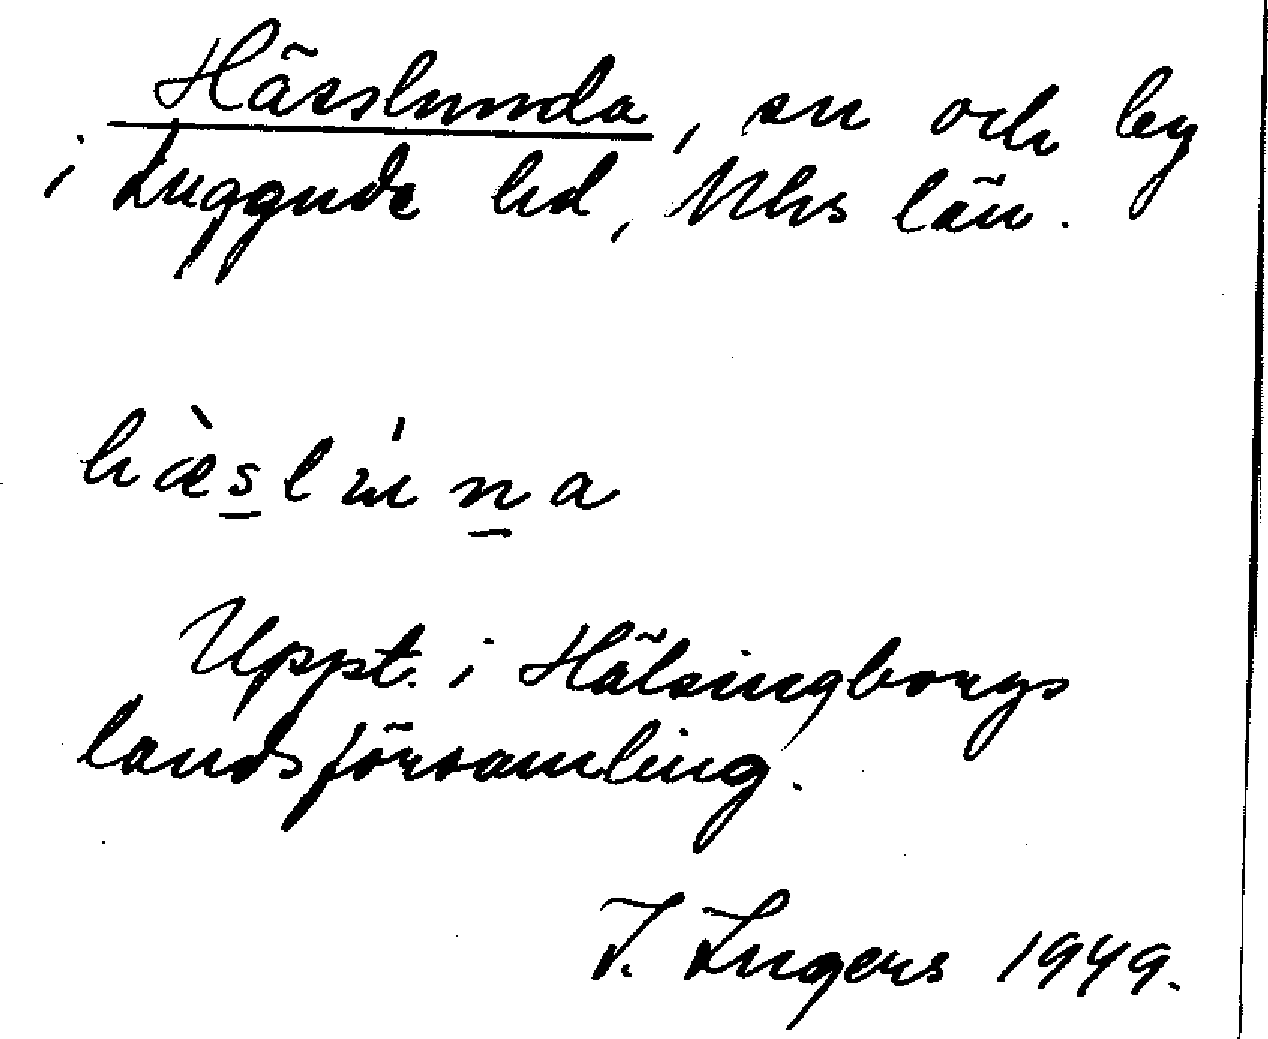 Hässlunda, sn och by
i Luggude hd, Mhs län.
hæ̀s̲lu̍n̲a
Uppt. i Hälsingborgs
landsförsamling.
I. Ingers 1949.